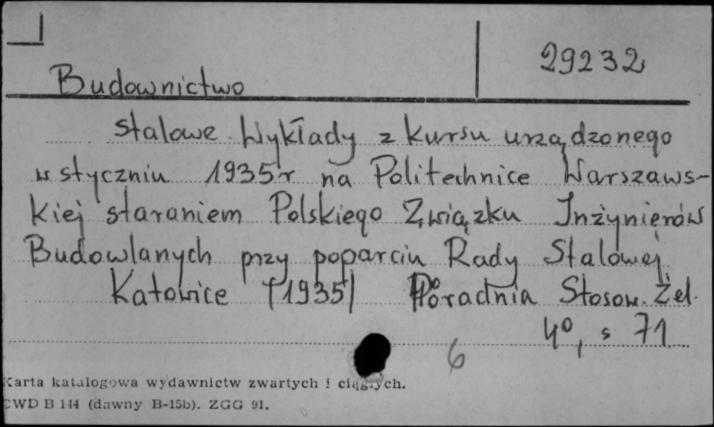 29232
Budownictwo
stalowe. Wykłady z kursu urządzonego
w styczniu 1935r na Politechnice Warszaws-
kiej staraniem Polskiego Związku Inżynierów
Budowlanych przy poparciu Rady Stalowej
Katowice [1935] Poradnia Stosow. Żel.
4°, s 71
6
Karta katalogowa wydawnictw zwartych i ciągłych.
CWD B 144 (dawny B-15b). ZGG 91.